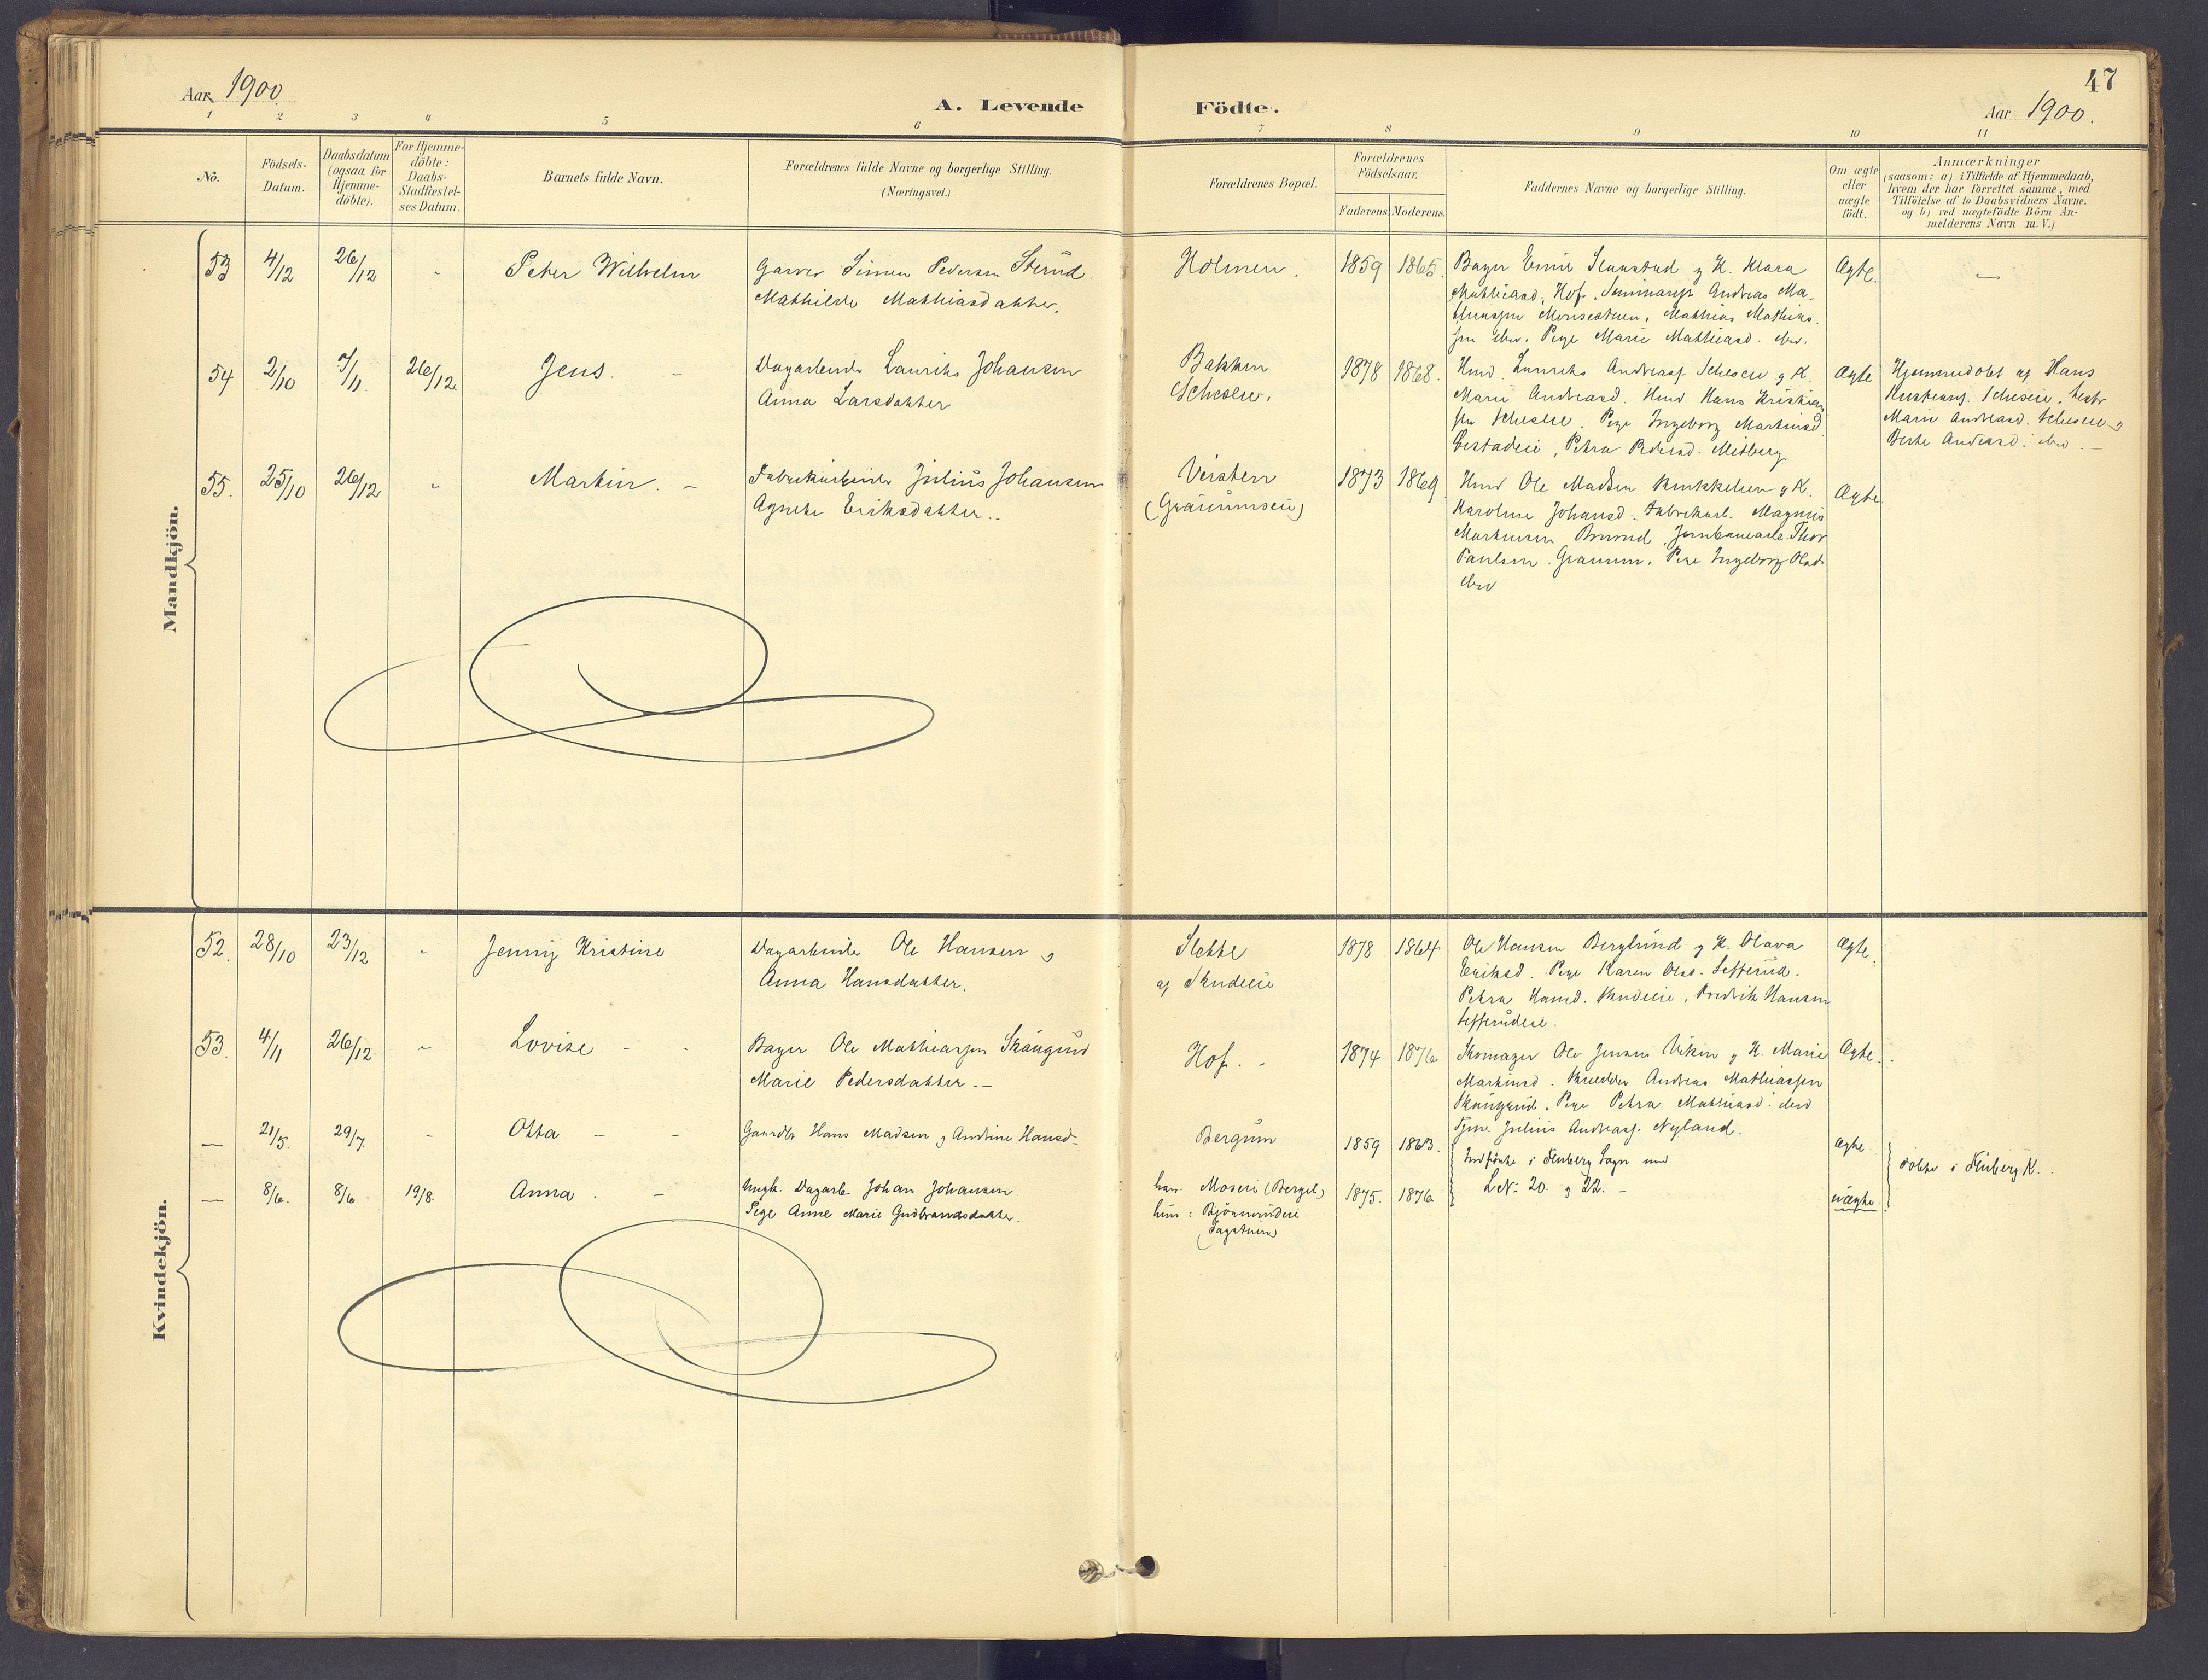 47
Aar 1900.
A. Levende Födte.
Aar 1900.
1 2 3 4 5 6 7 8 9 10 11
No.
Födsels-
Datum.
Daabsdatum
(ogsaa for
Hjemme-
döbte).
For Hjemme-
döbte:
Daabs-
Stadfæstel-
ses Datum.
Barnets fulde Navn.
Forældrenes fulde Navne og borgerlige Stilling.
(Næringsvei.)
Forældrenes Bopæl.
Forældrenes
Födselsaar.
Faderens. Moderens.
Faddernes Navne og borgerlige Stilling.
Om ægte
eller
uægte
födt.
Anmærkninger
(saasom: a) i Tilfælde af Hjemmedaab,
hvem der har forrettet samme, med
Tilföielse af to Daabsvidners Navne.
og b) ved uægtefödte Börn An-
melderens Navn m. V.)
Mandkjön.
53 4/12 26/12 - Peter Wilhelm
Garver Simen Pedersen Sterud
Mathilde Mathiasdatter.
Holmen.
1859 1865.
Bager Emil K. Klara
Mathiasd. Hof. Seminarist Andreas Ma-
Mathias Mathias-
sen ibid. Pige Marie Mathiasd. ibid.
Ægte.
54 2/10 7/11. 26/12 Jens. -
Dagarbeider Laurits Johansen
Anna Larsdatter
Bakken
1878 1868.
Laurits Andreass. K.
Marie Andreasd. Hans Kristian-
sen Pige Ingeborg Martinsd.
Petra Pedersd. Midberg
Ægte
Hjemmedöbt af Hans
Marie Andreasd.
Berte Andreasd. ibid. -
55. 25/10 26/12 - Martin. -
Fabrikarbeider Julius Johansen
Agnete Eriksdatter..
(Graiumseie)
1873 1869
Ole Madsen K.
Karoline Johansd. Fabrikarb. Magnus
Martinsen Jernbanearb. Thor
Paulsen. Gramm. Pige Ingeborg Olsd.
ibid
Ægte
Kvindekjön.
52. 28/10 23/12 - Jenny Kristine
Dagarbeider Ole Hansen
Anna Hansdatter.
Slette
af
1878 1864
Ole Hansen Berglund K. Olava
Eriksd. Pige Karen Olsd. Sefferud.
Petra Hansd. Fredrik Hansen
Ægte.
53. 4/11 26/12 - Lovise - -
Bager Ole Mathiassen
Marie Pedersdatter. -
Hof. -
1874 1876
Skomager Ole Jensen Viken K. Marie
Martinsd. Andreas Mathiassen
Pige Petra Mathiasd. ibid
Julius Andreass. Nyland.
Ægte.
— 21/5. 29/7. - Otta - -
Gaardbr Hans Madsen Andrine Hansd-
Bergum
1859 1863.
Indförte i Fluberg Sogn med
Ægte
döbte i Fluberg K.
— 8/6. 8/6 19/8. Anna. -
Ungk. Dagarb Johan Johansen.
Pige Anne Marie Gudbrandsdatter.
han. Moseie
hun:
1875. 1876
L.N. 20. 22. -
uægte